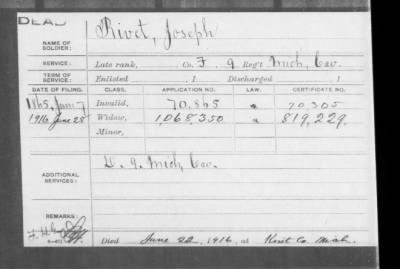 DEAD
NAME OF SOLDIER: Rivet, Joseph
SERVICE: Late rank, Co. F, 9 Reg't Mich. Cav.
TERM OF SERVICE: Enlisted , 1 Discharged , 1
DATE OF FILING. CLASS. APPLICATION NO. LAW. CERTIFICATE NO.
1865, June 7 Invalid, 70.865 70.305
1916 June 28 Widow, 1,068,350 819,229.
Minor,
ADDITIONAL SERVICES: D. 9. Mich. Cav.
REMARKS:
Died June 22, 1916, at Kent Co. Mich.